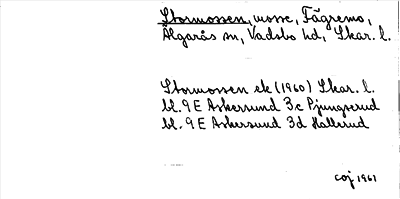 Stormossen, mosse, Fägremo,
Älgarås sn, Vadsbo hd, Skar. l.
Stormossen ek (1960) Skar. l.
bl. 9 E Askersund 3c Pjungserud
bl. 9 E Askersund 3d Hallerud
coj 1961